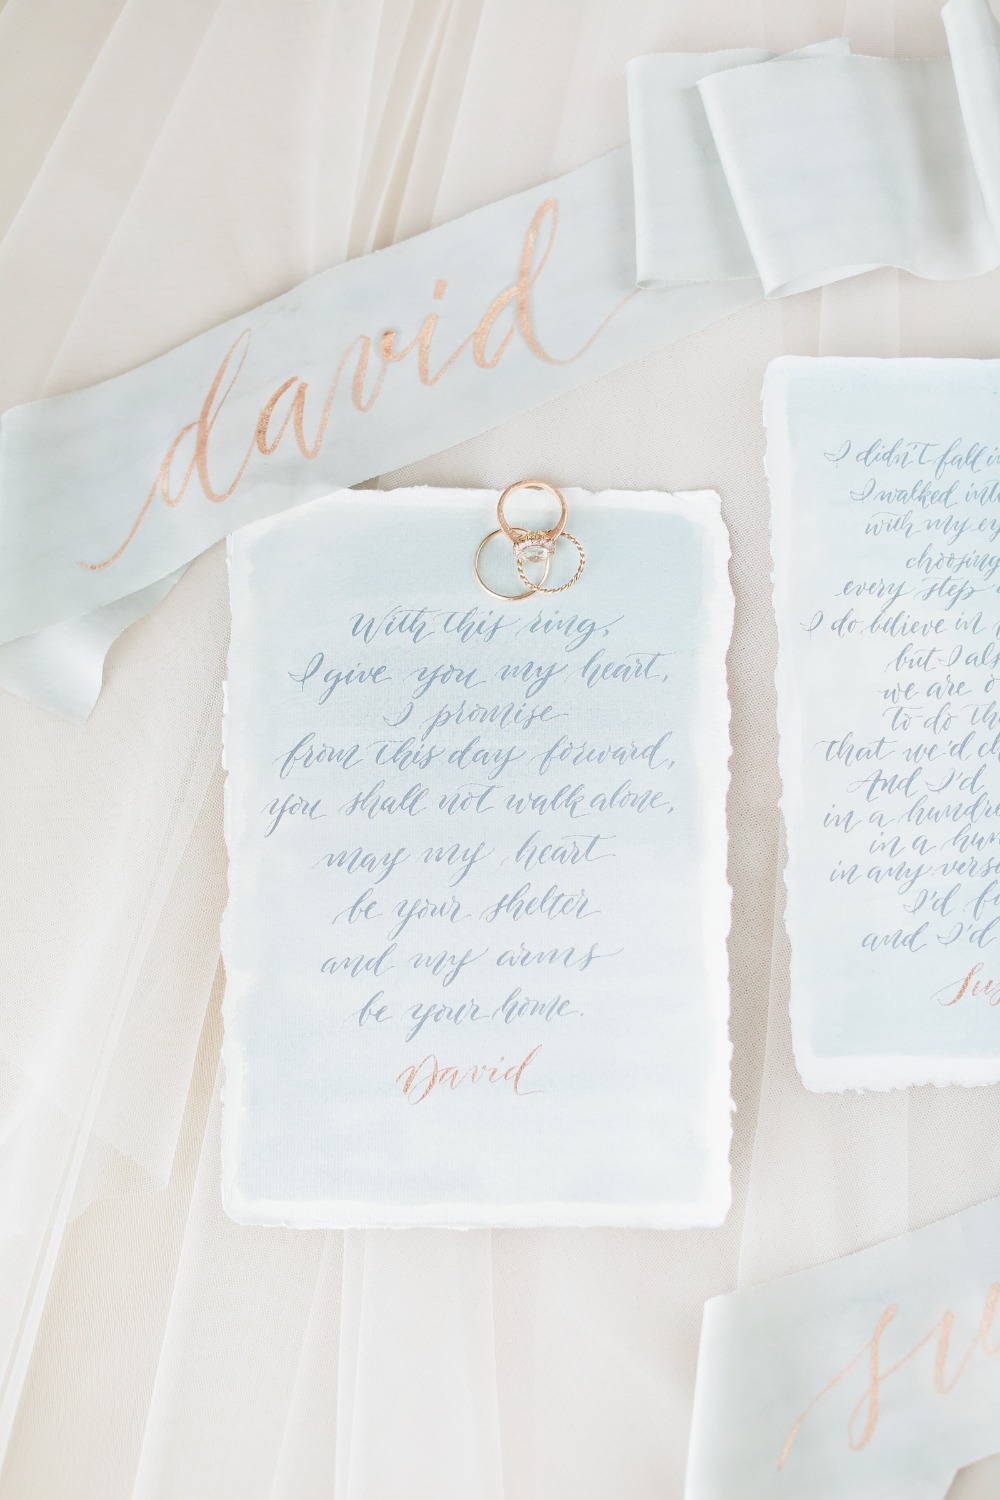 david
With this ring,
I give you my heart,
I promise
from this day forward,
you shall not walk alone,
may my heart
be your shelter
and my arms
be your home.
David
I didn't fall
I walked
with my
choosing
every step
I do believe in
but I
we are
to do
that we'd
And I'd
in a
in a
in any
I'd
and I'd